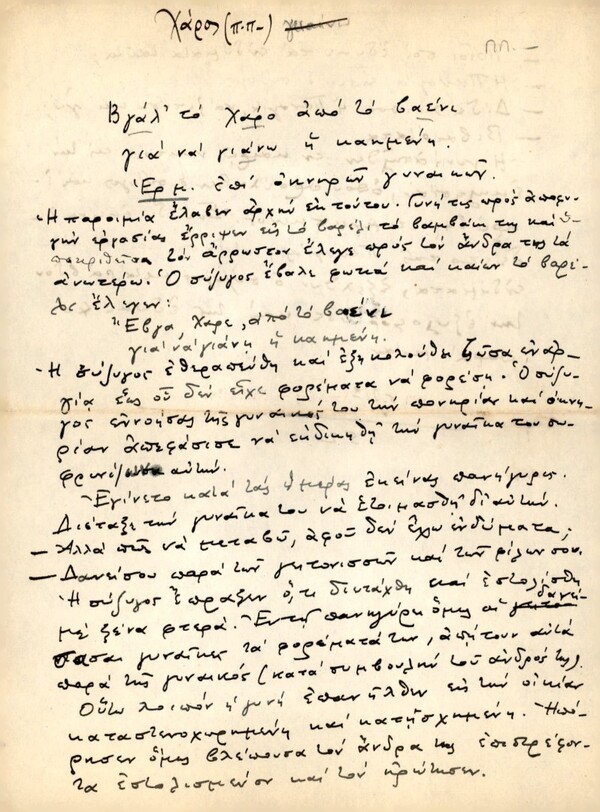 Χάρος (π.π.-)
ππ. —
Βγάλ' το Χάρο από το βαένι
για να γιάνω η καημένη.
Ερμ. επί οκνηρών γυναικών.
Η παροιμία έλαβεν αρχήν εκ τούτου. Γυνή τις προς αποφυ-
γήν εργασίας έρριψεν εις το βαρέλι το βαμβάκι της και υ-
ποκριθείσα τον άρρωστον έλεγε προς τον άνδρα της τα
ανωτέρω. Ο σύζυγος έβαλε φωτιά και καίων το βαρέ-
λι έλεγεν:
"Έβγα, Χάρε, από το βαένι
για να γιάνη η καημένη.
- Η σύζυγος εθεραπεύθη και εξηκολούθει ζώσα εν αρ-
γία έως ου δεν είχε φορέματα να φορέση. Ο σύζυ-
γος εννοήσας της γυναικός του την πονηρίαν και οκνη-
ρίαν απεφάσισε να εκδικηθή την γυναίκα του σω-
φρονίζων αυτήν.
Εγίνετο κατά τας ημέρας εκείνας πανήγυρις.
Διέταξε την γυναίκα του να ετοιμασθή δι' αυτήν.
— Αλλά πώς να μεταβώ, αφού δεν έχω ενδύματα;
— Δανείσου παρά των γειτονισσών και των φίλων σου.
Η σύζυγος έπραξεν ό,τι διετάχθη και εστολίσθη
με ξένα φτερά. Εν τη πανηγύρει όμως αι δανεί-
σασαι γυναίκες τα φορέματά των, απήτουν αυτά
παρά της γυναικός (κατά συμβουλήν του ανδρός της).
Ούτω λοιπόν η γυνή επανήλθεν εις την οικίαν
καταστενοχωρημένη και κατησχημένη. Ηπό-
ρησεν όμως βλέπουσα τον άνδρα της επιστρέφον-
τα εστολισμένον και τον ηρώτησεν.